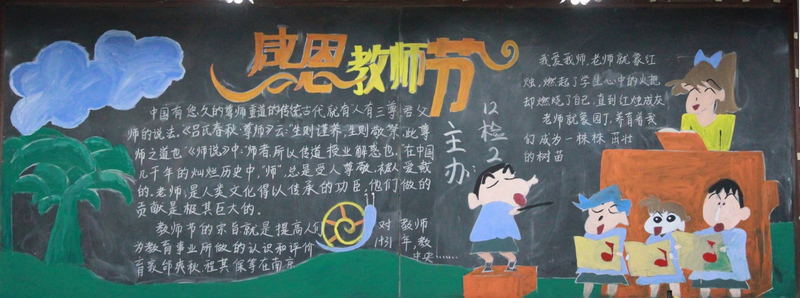 感恩教师节
中国有悠久的尊师重道的传统古代就有人有三尊君父
师的说法。《吕氏春秋·尊师》云:"生则谨养,生则敬祭,此尊
师之道也"《师说》中:"师者,所以传道授业解惑也。"在中国
几千年的灿烂历史中,"师"总是受人尊敬、被人爱戴
的。老师是人类文化得以传承的功臣,他们做的
贡献是极其巨大的。
教师节的宗旨就是提高人们对教师
为教育事业所做的认识和评价
育家邰爽秋、程其保等在南京
年,教
中央……
口检2
主办
我爱我师,老师就象红
烛,燃起了学生心中的火把
却燃烧了自己,直到红烛成灰
老师就象园丁,养育着我
们成为一株株茁壮
的树苗